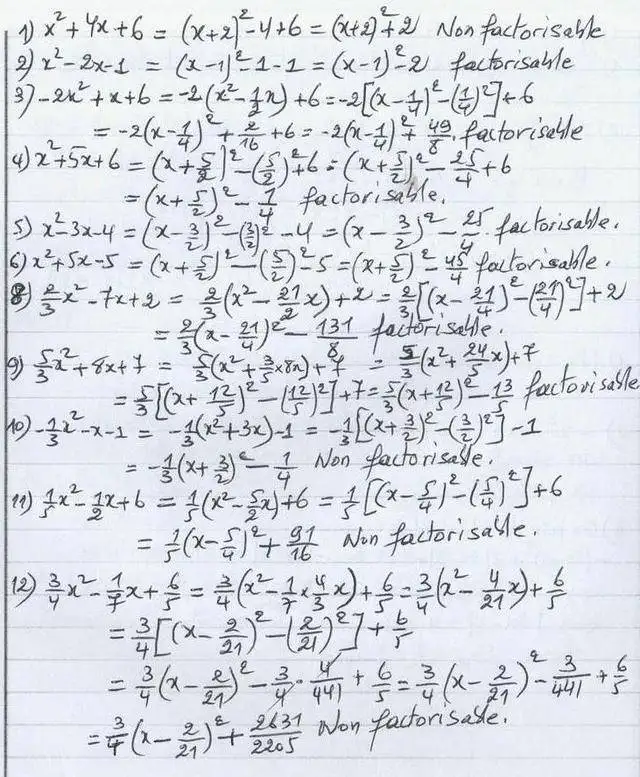 1) x² + 4x + 6 = (x+2)² - 4 + 6 = (x+2)² + 2 Non factorisable
2) x² - 2x - 1 = (x-1)² - 1 - 1 = (x-1)² - 2 factorisable
3) -2x² + x + 6 = -2(x² - 1/2 x) + 6 = -2[(x - 1/4)² - (1/4)²] + 6
= -2(x - 1/4)² + 2/16 + 6 = -2(x - 1/4)² + 49/8. factorisable
4) x² + 5x + 6 = (x + 5/2)² - (5/2)² + 6 = (x + 5/2)² - 25/4 + 6
= (x + 5/2)² - 1/4 factorisable.
5) x² - 3x - 4 = (x - 3/2)² - (3/2)² - 4 = (x - 3/2)² - 25/4 factorisable.
6) x² + 5x - 5 = (x + 5/2)² - (5/2)² - 5 = (x + 5/2)² - 45/4 factorisable.
8) 2/3 x² - 7x + 2 = 2/3 (x² - 21/2 x) + 2 = 2/3 [(x - 21/4)² - (21/4)²] + 2
= 2/3 (x - 21/4)² - 131/8 factorisable.
9) 5/3 x² + 8x + 7 = 5/3 (x² + 3/5 × 8x) + 7 = 5/3 (x² + 24/5 x) + 7
= 5/3 [(x + 12/5)² - (12/5)²] + 7 = 5/3 (x + 12/5)² - 13/5 factorisable
10) -1/3 x² - x - 1 = -1/3 (x² + 3x) - 1 = -1/3 [(x + 3/2)² - (3/2)²] - 1
= -1/3 (x + 3/2)² - 1/4 Non factorisable.
11) 1/5 x² - 1/2 x + 6 = 1/5 (x² - 5/2 x) + 6 = 1/5 [(x - 5/4)² - (5/4)²] + 6
= 1/5 (x - 5/4)² + 91/16 Non factorisable.
12) 3/4 x² - 1/7 x + 6/5 = 3/4 (x² - 1/7 × 4/3 x) + 6/5 = 3/4 (x² - 4/21 x) + 6/5
= 3/4 [(x - 2/21)² - (2/21)²] + 6/5
= 3/4 (x - 2/21)² - 3/4 · 4/441 + 6/5 = 3/4 (x - 2/21)² - 3/441 + 6/5
= 3/4 (x - 2/21)² + 2631/2205 Non factorisable.